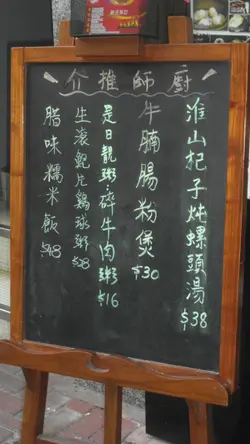 廚師推介
淮山杞子炖螺頭湯 $38
牛腩腸粉煲 $30
是日靚粥:碎牛肉粥 $16
生滾鯇片鷄球粥 $28
腊味糯米飯 $48